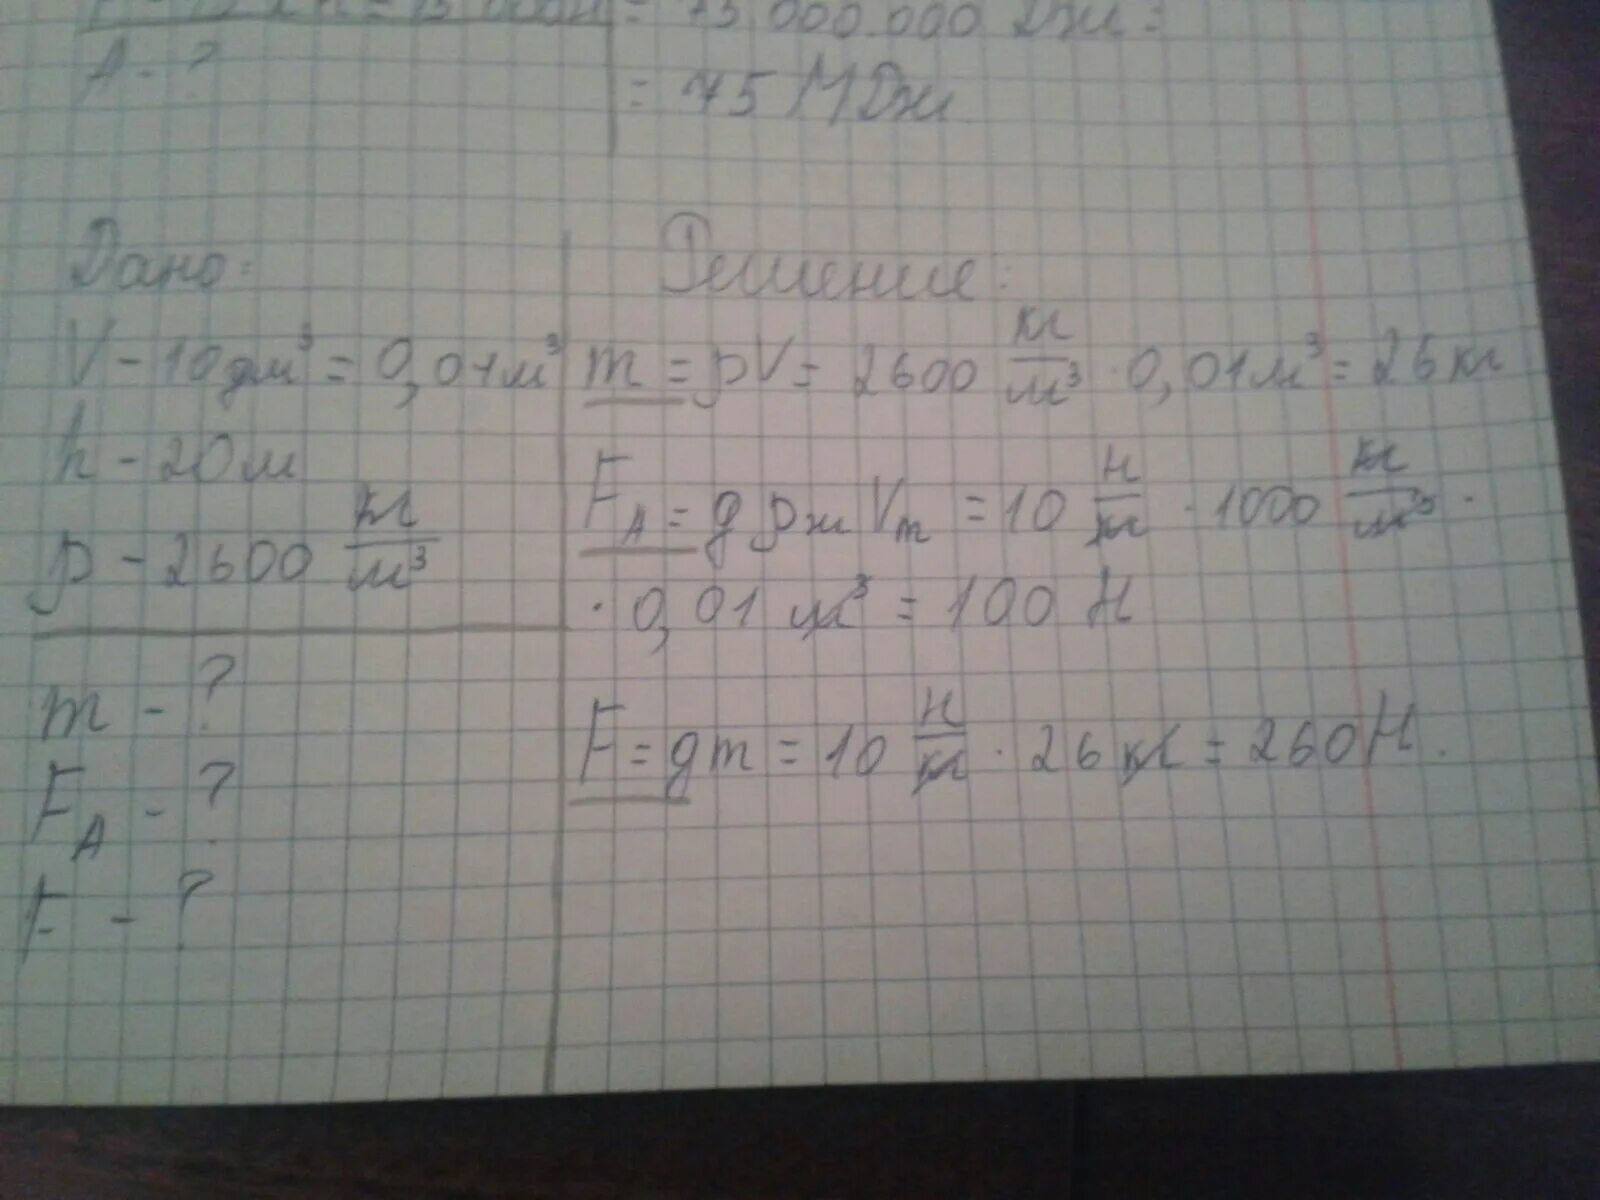 = 75 000 000 Дж =
A - ?
= 75 МДж
Дано:
V - 10 дм³ = 0,01 м³
h - 20 м
ρ - 2600 кг/м³
m - ?
F_A - ?
F - ?
Решение:
m = ρV = 2600 кг/м³ · 0,01 м³ = 26 кг
F_A = g ρж Vт = 10 Н/кг · 1000 кг/м³ ·
· 0,01 м³ = 100 Н
F = gm = 10 Н/кг · 26 кг = 260 Н.